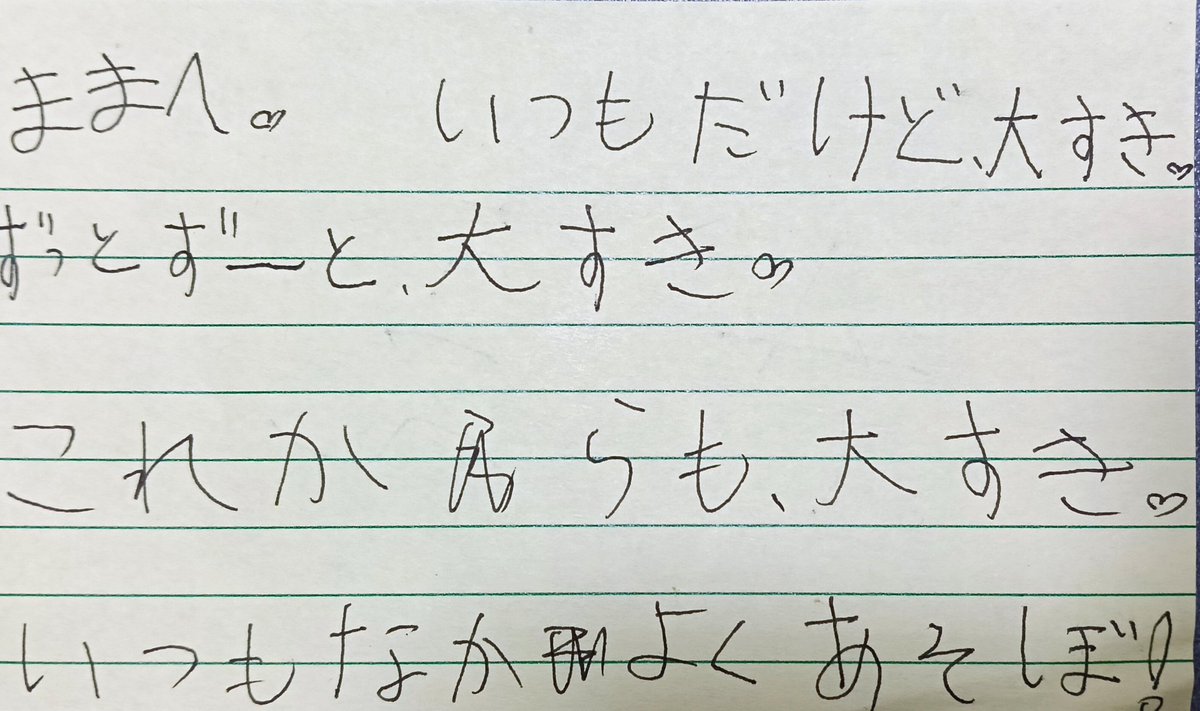 ままへ。 いつもだけど、大すき。
ずっとずーと、大すき。
これからも、大すき。
いつもなかよくあそしぼ!